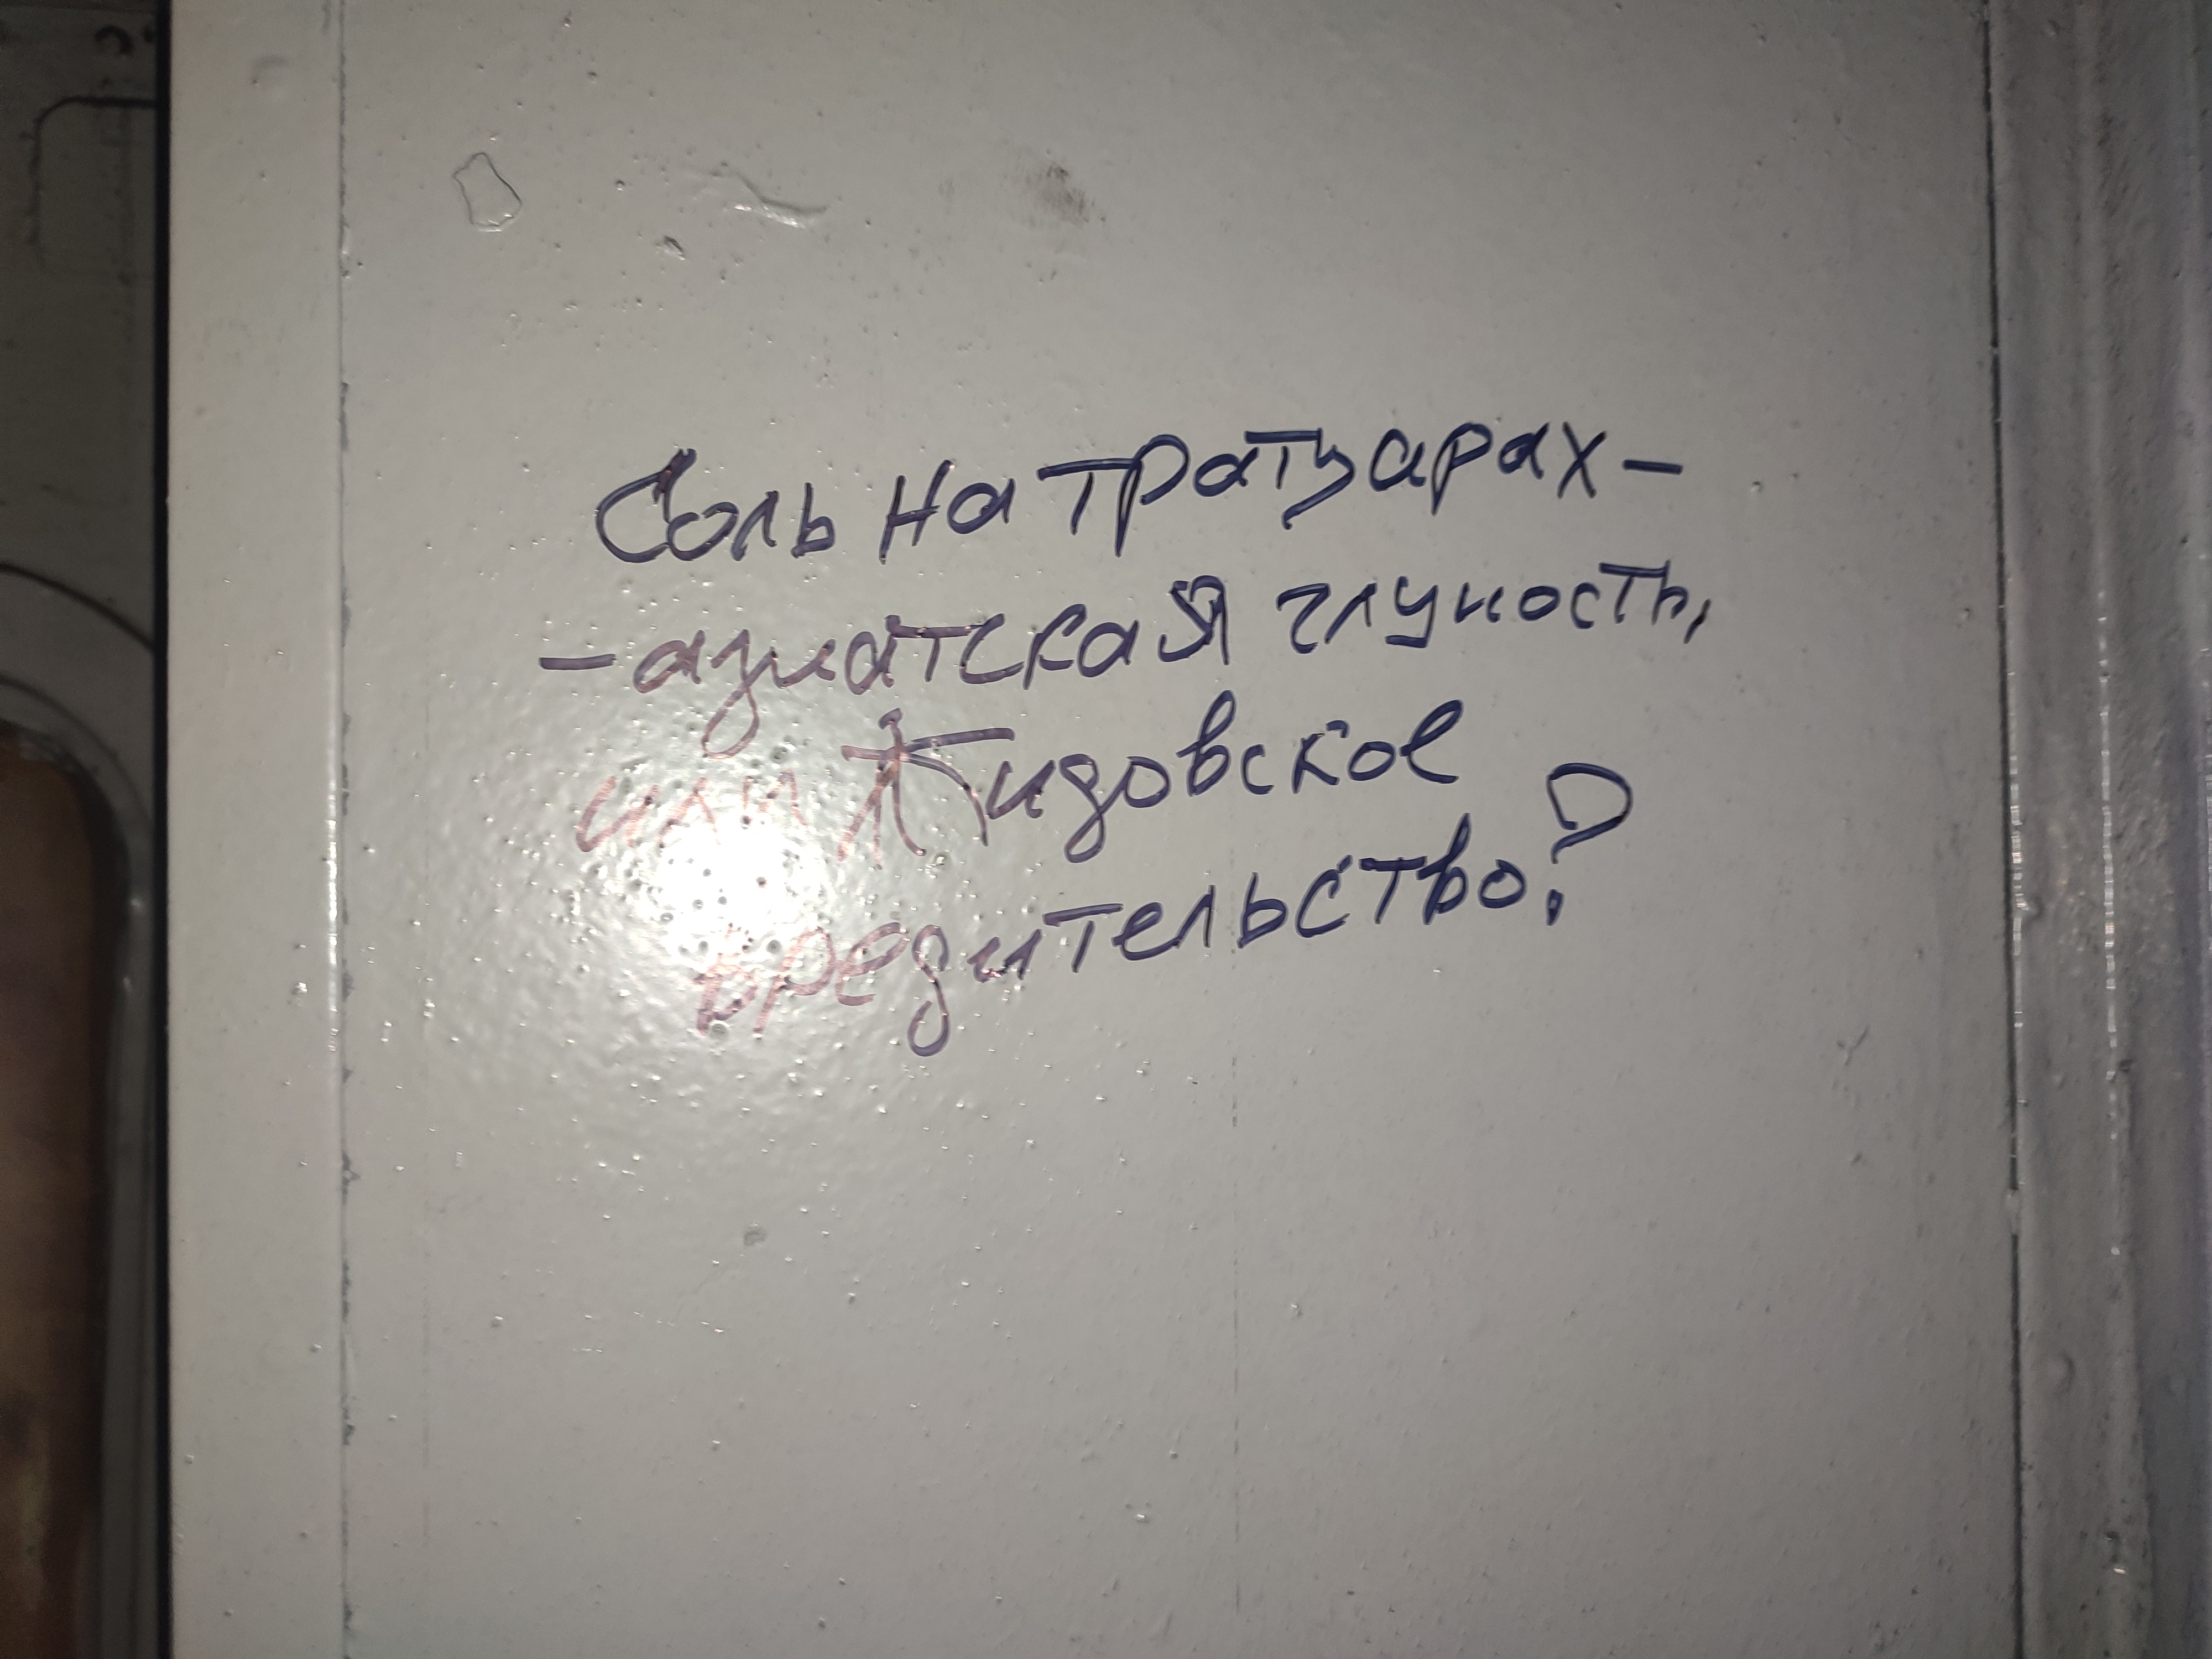 Соль на тратуарах -
- азиатская глупость,
или Жидовское
вредительство?